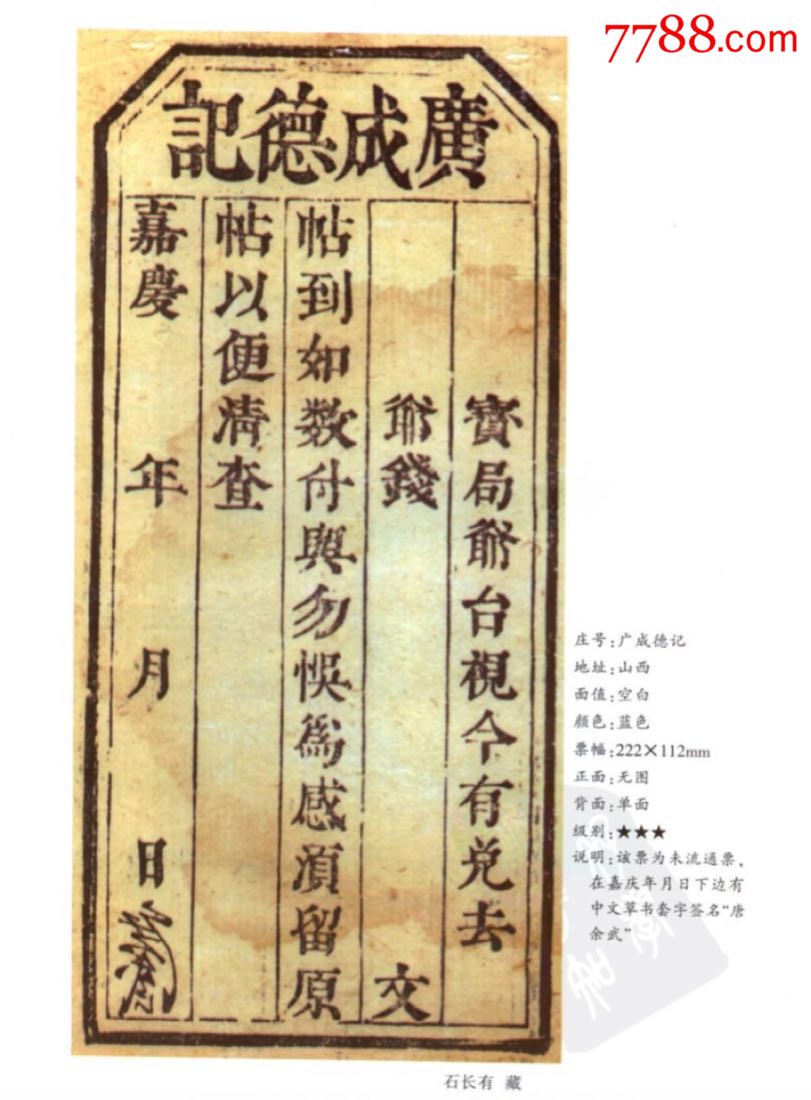 7788.com
廣成德記
寳局爺台視今有兑去
爺錢 文
帖到如数付與勿悞爲感湏留原
帖以便清查
嘉慶 年 月 日
庄号:广成德记
地址:山西
面值:空白
颜色:蓝色
票幅:222×112mm
正面:无图
背面:单面
级别:★★★
说明:该票为未流通票，
在嘉庆年月日下边有
中文草书套字签名“唐
余武”
石长有 藏